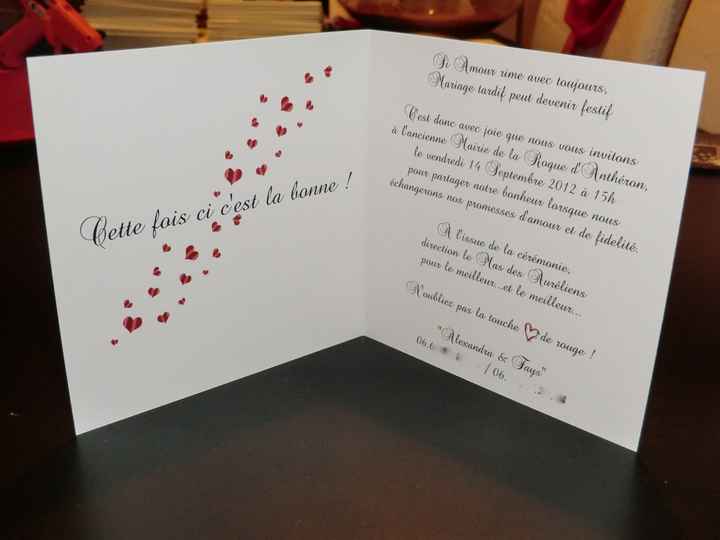 Cette fois ci c'est la bonne !
Si Amour rime avec toujours,
Mariage tardif peut devenir festif
C'est donc avec joie que nous vous invitons
à l'ancienne Mairie de la Roque d'Anthéron,
le vendredi 14 Septembre 2012 à 15h
pour partager notre bonheur lorsque nous
échangerons nos promesses d'amour et de fidelité.
A l'issue de la cérémonie,
direction le Mas des Auréliens
pour le meilleur...et le meilleur...
N'oubliez pas la touche de rouge !
"Alexandra & Fays"
06.6 / 06.